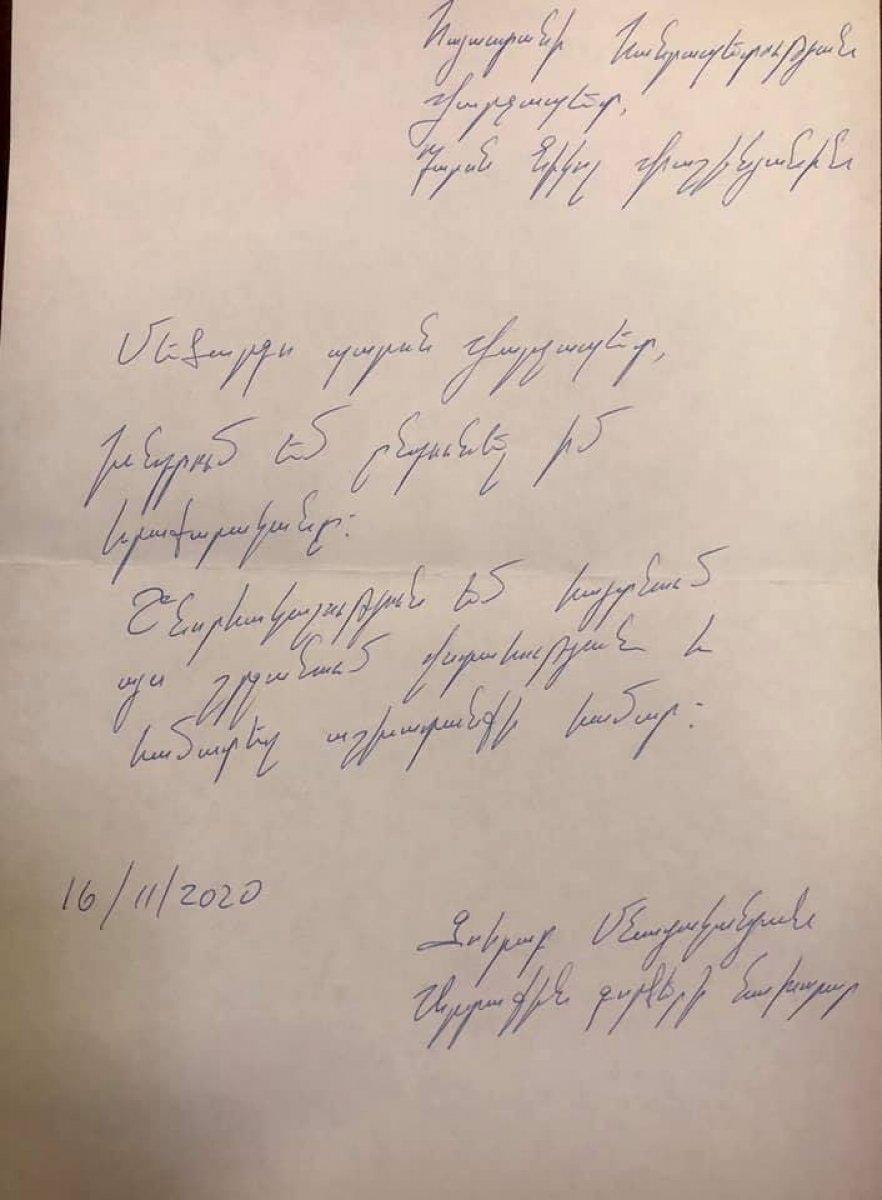 Հայաստանի Հանրապետության
Վարչապետ,
Պարոն Նիկոլ Փաշինյանին
Մեծարգո պարոն Վարչապետ,
խնդրում եմ ընդունել իմ
հրաժարականը:
Շնորհակալություն եմ հայտնում
այս շրջանում վստահության և
համատեղ աշխատանքի համար:
16/11/2020
Զոհրաբ Մնացականյան
Արտաքին գործերի նախարար